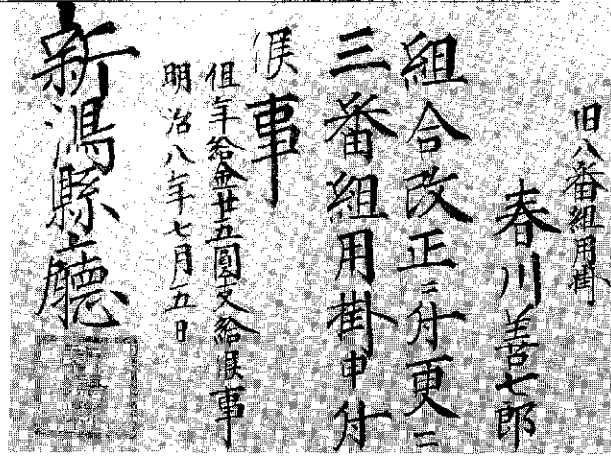 旧八番組用掛
春川善七郎
組合改正ニ付更ニ
三番組用掛申付
候事
但年給金廿五圓支給候事
明治八年七月五日
新潟縣廳